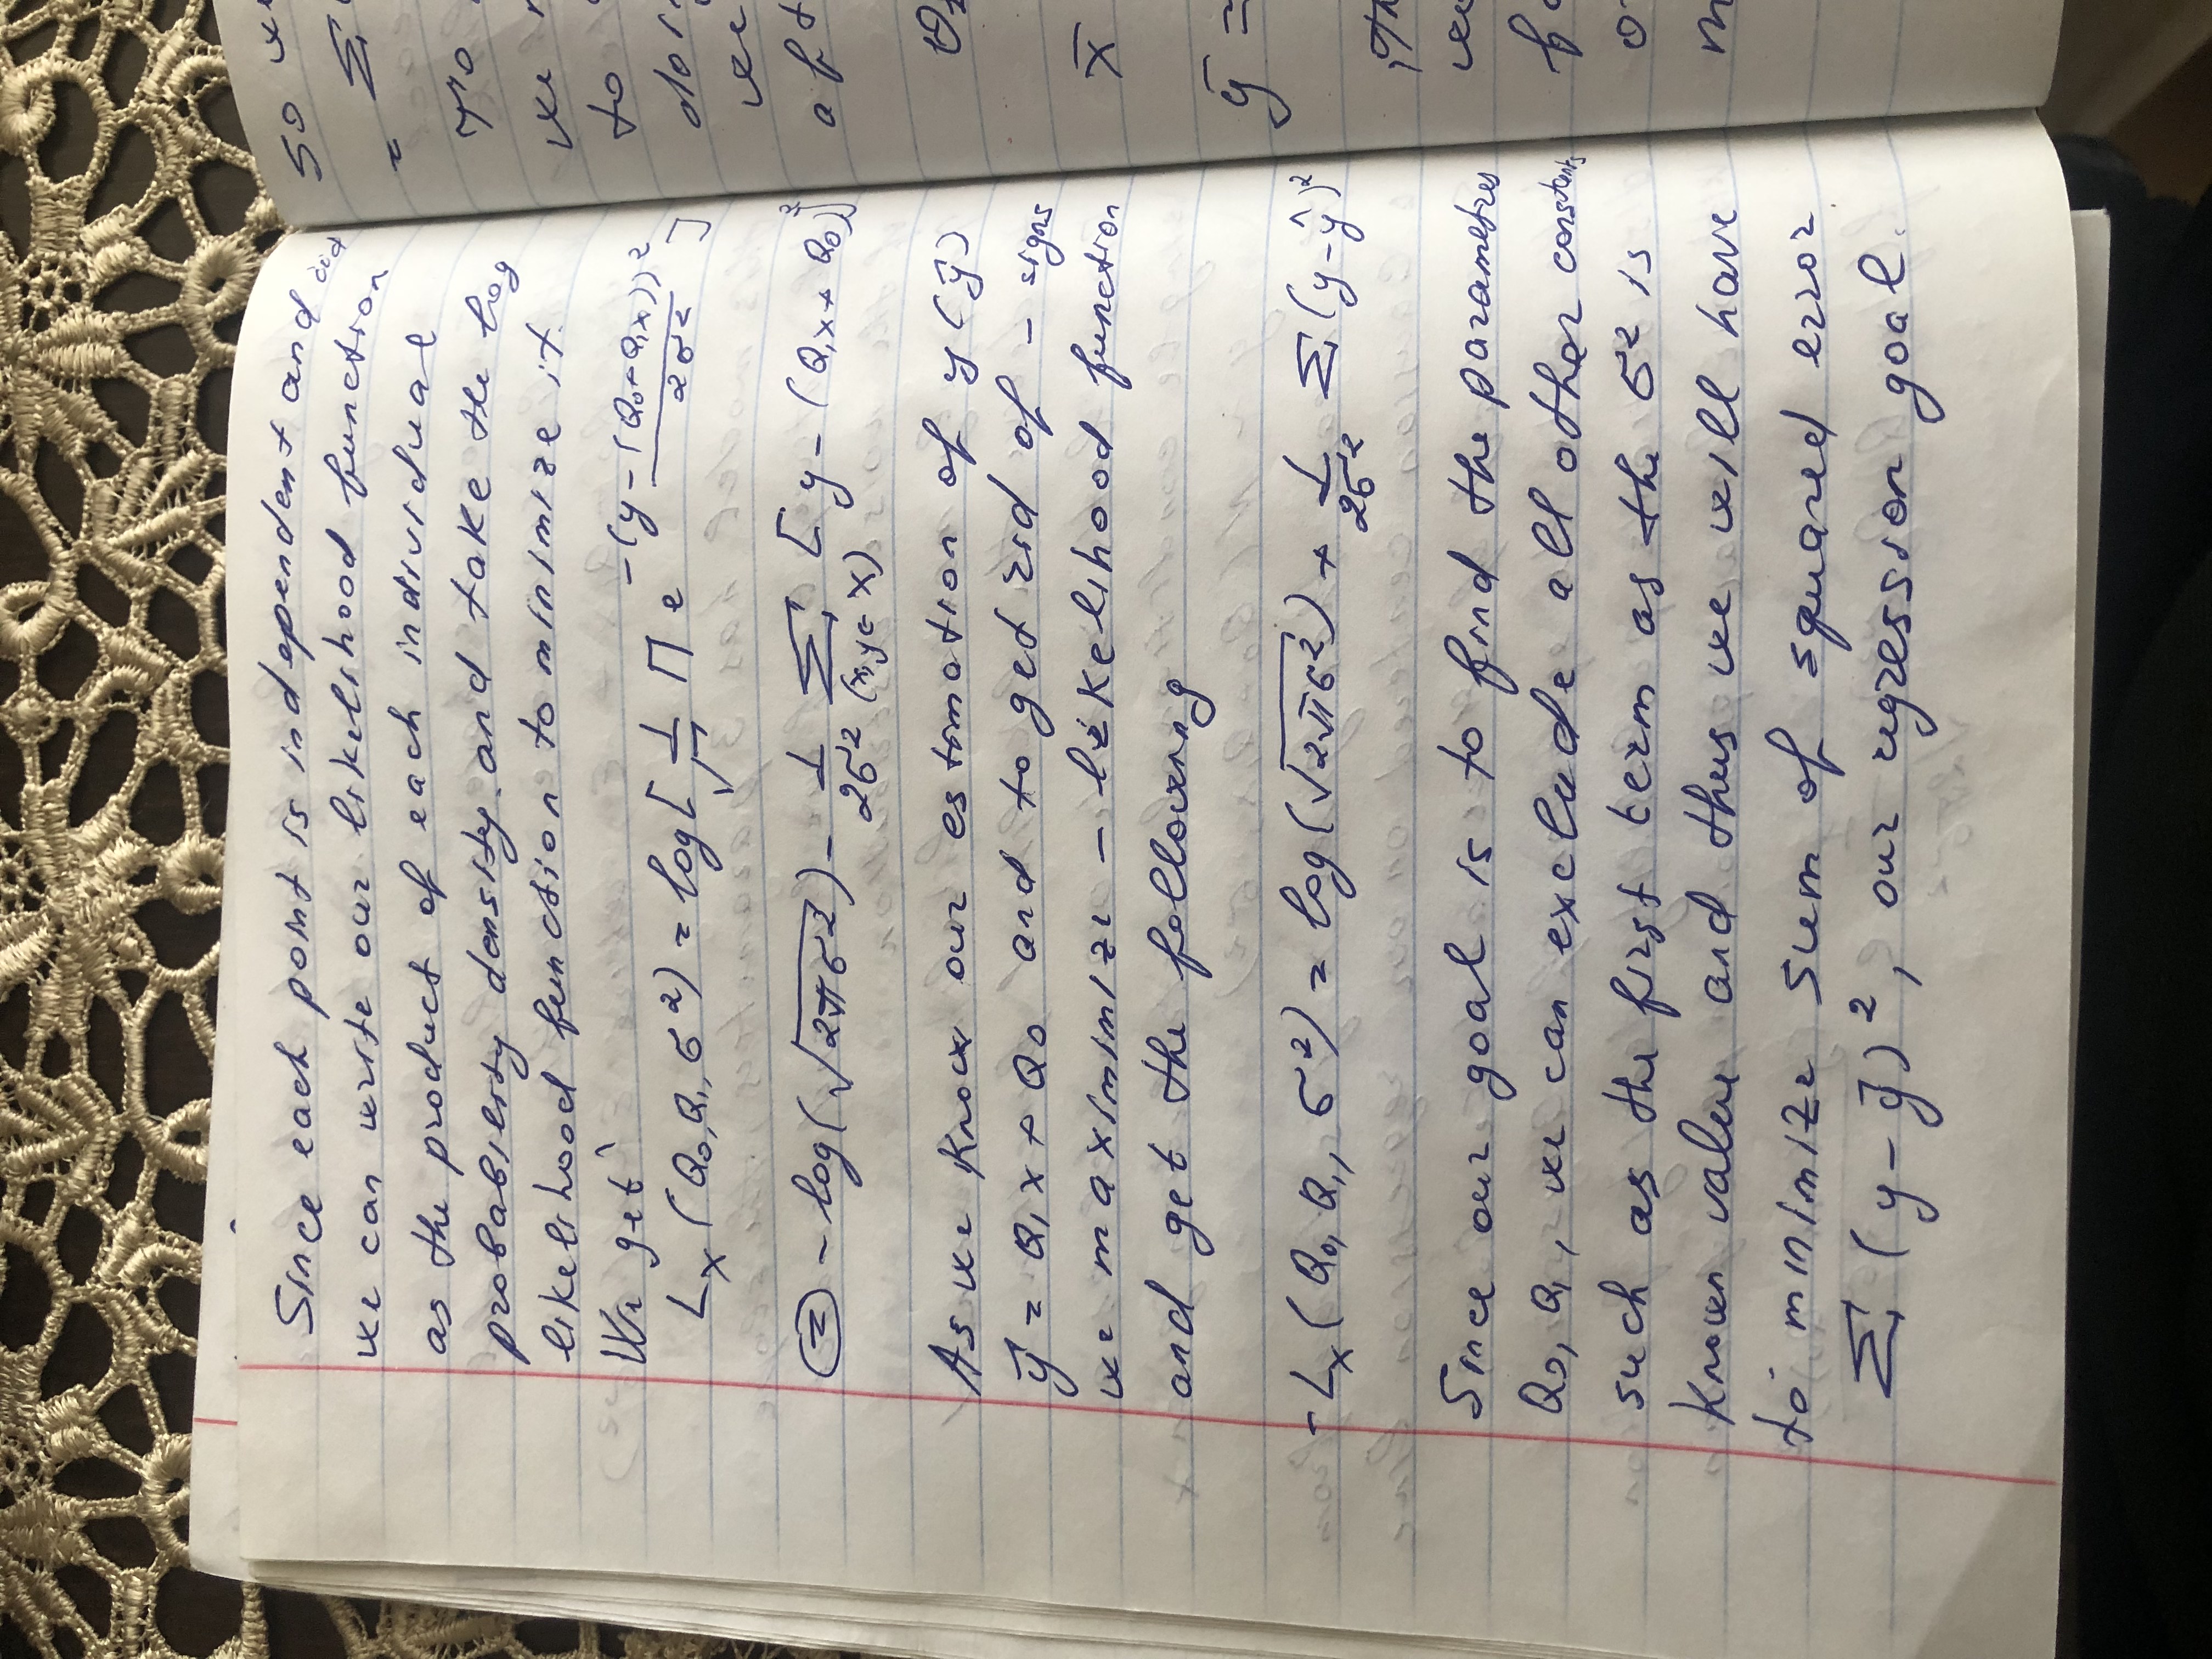 Since each point is independent and iid
we can write our likelihood function
as the product of each individual
probability density and take the log
likelihood function to minimize it.
We get
Lx (Q0, Q1, σ²) = log[ 1/√ ∏ e^(-(y-(Q0+Q1x))²/2σ²) ]
= -log(√2πσ²) - 1/2σ² Σ (x,y∈X) [y-(Q1x+Q0)]²
As we know our estimation of y (ŷ)
ŷ = Q1x + Q0 and to get rid of - signs
we maximimize - likelihood function
and get the following
-Lx (Q0, Q1, σ²) = log(√2πσ²) + 1/2σ² Σ(y-ŷ)²
Since our goal is to find the parametres
Q0, Q1, we can exclude all other constants
such as the first term as the σ² is
known value and thus we will have
to minimize sum of squared error
Σ (y-ŷ)², our regression goal.
So we
= Σ
To
we
to
doi
we
aft
x̄
ȳ =
we
fo
o
m